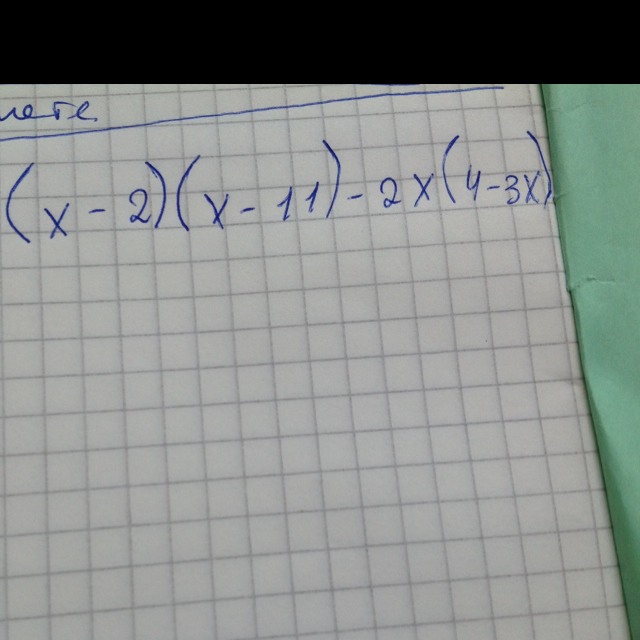 (x - 2)(x - 11) - 2x(4 - 3x)